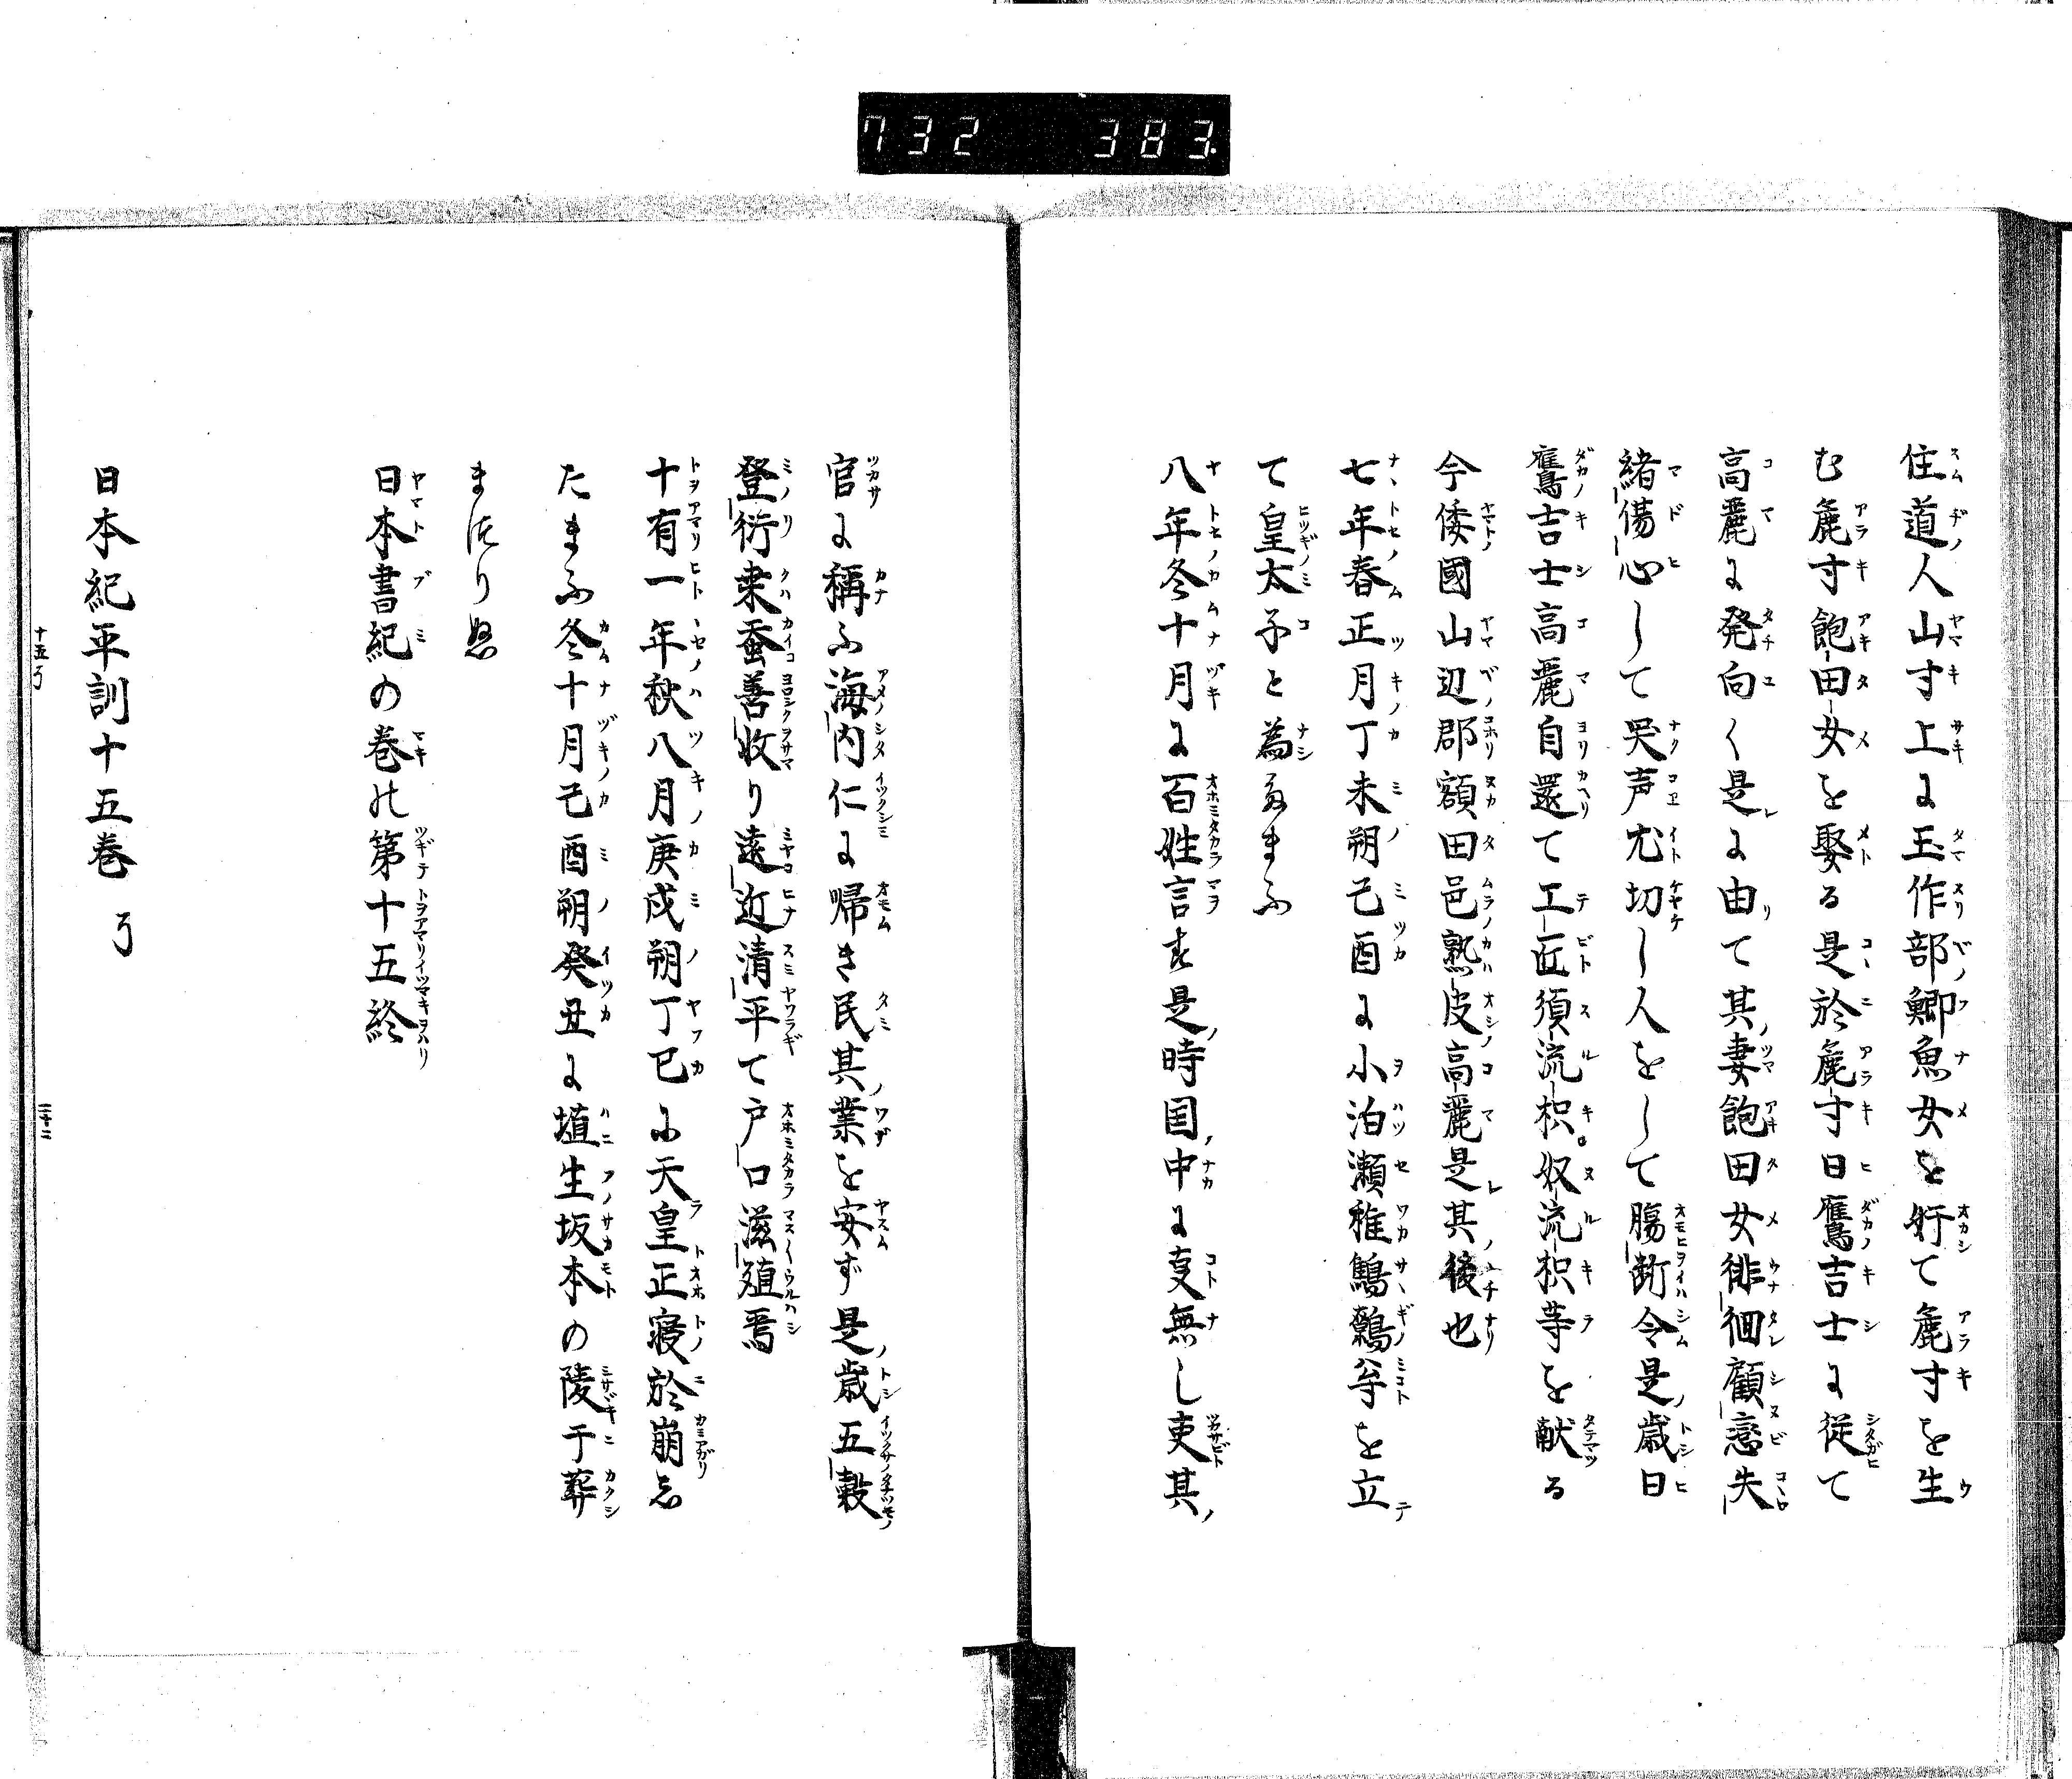 732 383
住道人山寸上に玉作部鯽魚女を奸て麁寸を生
む麁寸飽田女を娶る是於麁寸日鷹吉士に従て
高麗に発向く是に由て其妻飽田女徘徊顧恋失
緒傷心して哭声尤切し人をして腸断令是歳日
鷹吉士高麗自還て工匠須流枳奴流枳等を献る
今倭國山辺郡額田邑熟皮高麗是其後也
七年春正月丁未朔己酉に小泊瀬稚鷦鷯尊を立
て皇太子と為たまふ
八年冬十月に百姓言す是時国中に事無し吏其
官に稱ふ海内仁に帰き民其業を安ず是歳五穀
登衍桒蚕善收り遠近清平て戸口滋殖焉
十有一年秋八月庚戌朔丁巳に天皇正寝於崩志
たまふ冬十月己酉朔癸丑に埴生坂本の陵于葬
まつりぬ
日本書紀の巻の第十五終
日本紀平訓十五巻 了
十五了 二十二